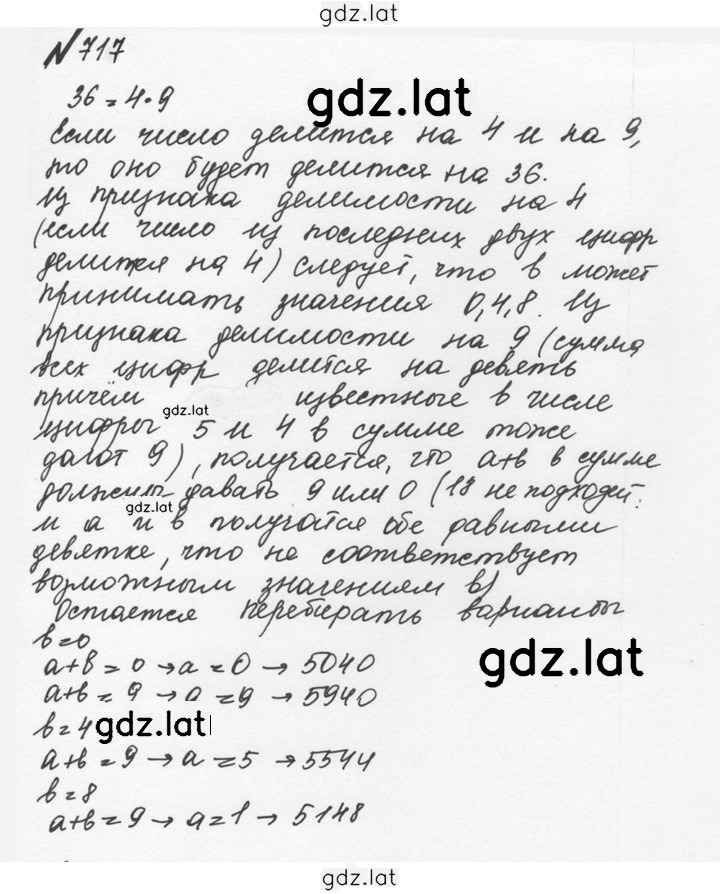 gdz.lat
№ 717
36 = 4·9
gdz.lat
Если число делится на 4 и на 9,
то оно будет делится на 36.
Из признака делимости на 4
(если число из последних двух цифр
делится на 4) следует, что в может
принимать значения 0,4,8. Из
признака делимости на 9 (сумма
всех цифр делится на девять
причём известные в числе
gdz.lat
цифры 5 и 4 в сумме тоже
дают 9), получается, что а+в в сумме
должны давать 9 или 0 (18 не подходит:
gdz.lat
и а и в получатся обе равными
девятке, что не соответствует
возможным значением в)
Остается перебирать варианты
в=0
а+в=0→а=0→5040
gdz.lat
а+в=9→а=9→5940
в=4
gdz.lat
а+в=9→а=5→5544
в=8
а+в=9→а=1→5148
gdz.lat